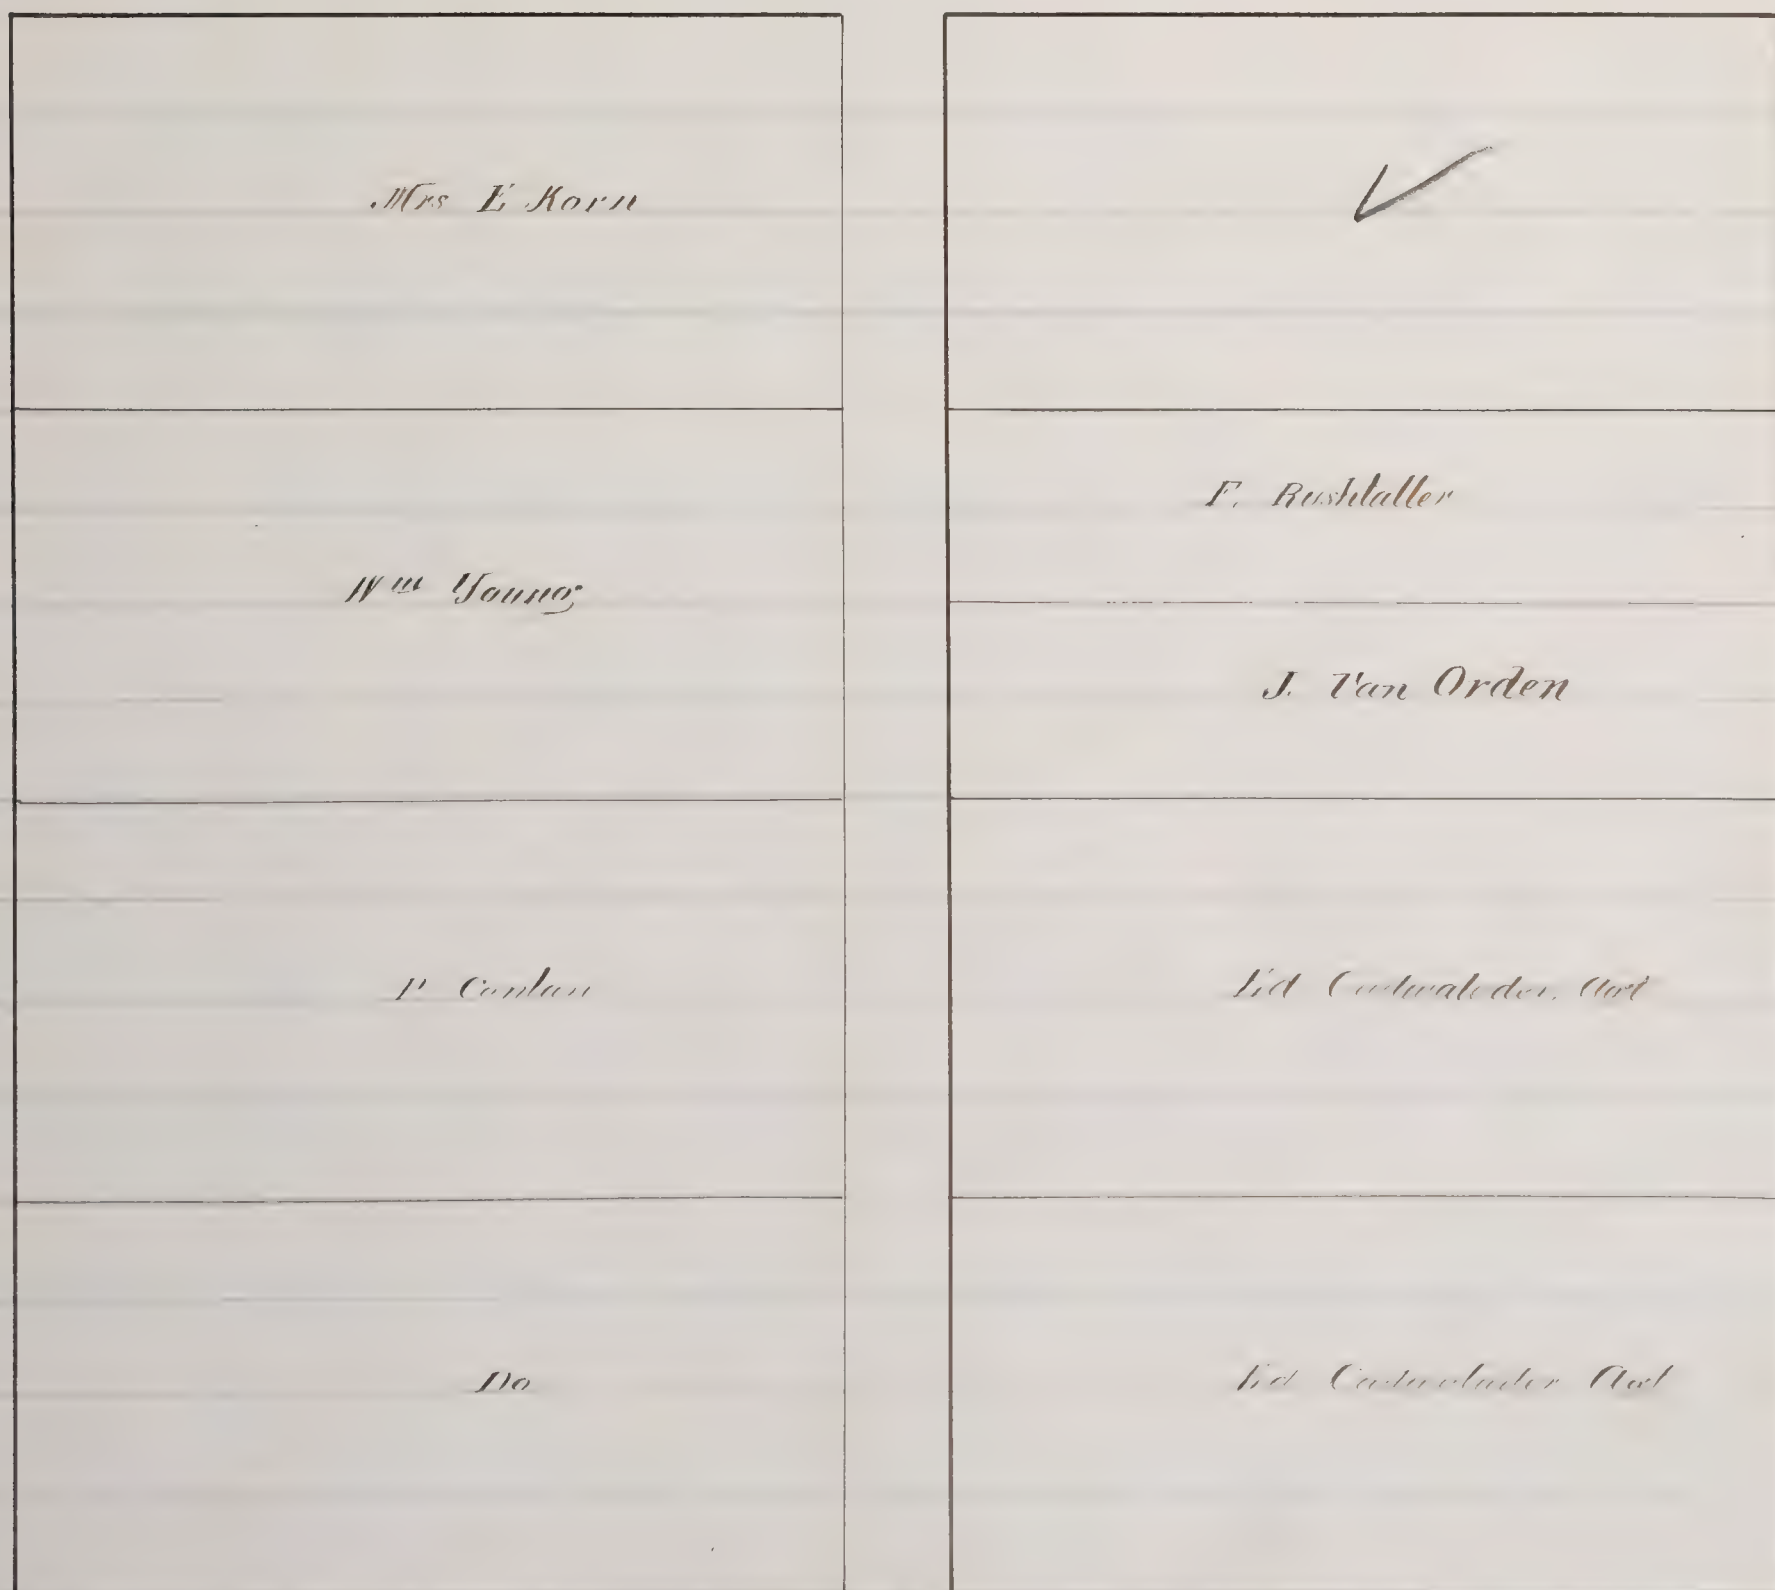 Mrs E Korn
Wm Young
P Conlan
Do
F. Rushtaller
J. Van Orden
Ed Cadwalader. Agt
Ed Cadwalader Agt